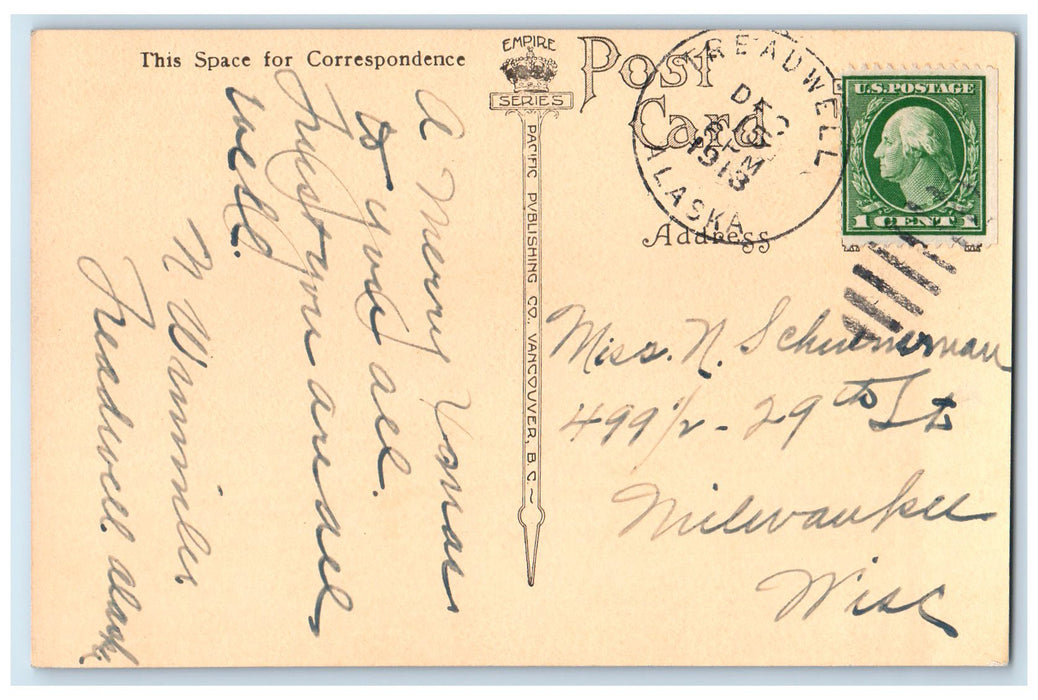 This Space for Correspondence
EMPIRE
SERIES
PACIFIC PUBLISHING CO., VANCOUVER, B.C.
Post
Card
Address
TREADWELL
DEC
PM
1913
ALASKA
U.S. POSTAGE
1 CENT 1
A Merry Xmas
to you all.
Trust you are all
well.
N
Treadwell. Alask.
Miss. N. Scheunerman
499½ - 29th St
Milwaukee
Wisc